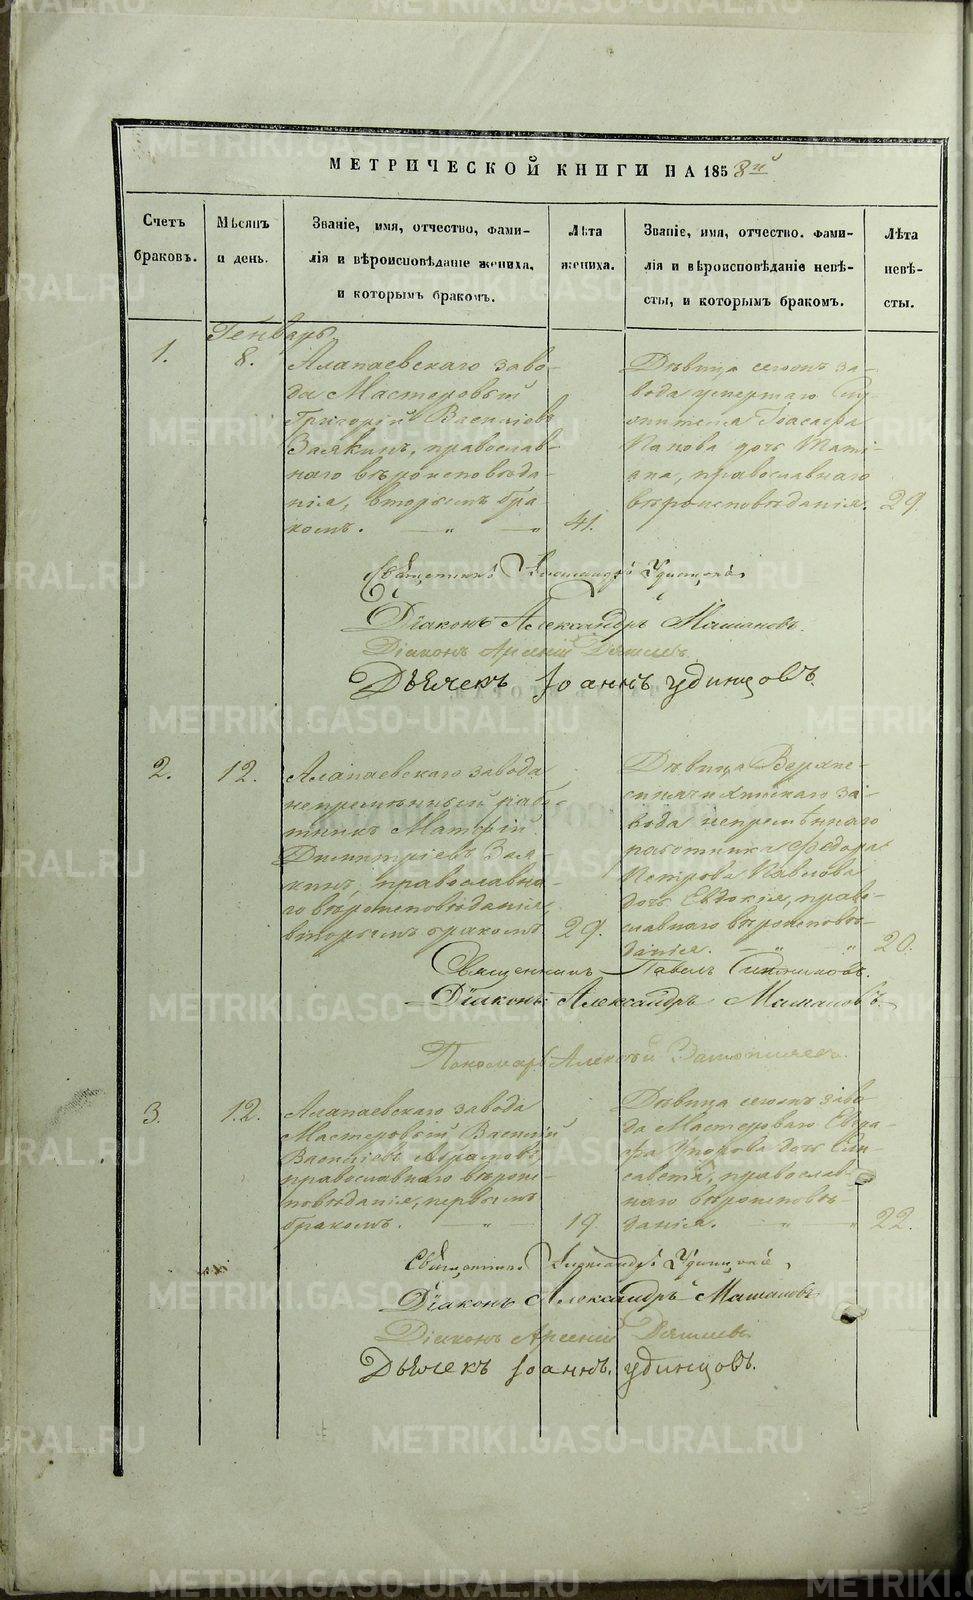 МЕТРИЧЕСКОЙ КНИГИ НА 1858й
Счетъ браковъ.
Мѣсяцъ и день.
Званіе, имя, отчество, фами-
лія и вѣроисповѣданіе жениха,
и которымъ бракомъ.
Лѣта жениха.
Званіе, имя, отчество. фами-
лія и вѣроисповѣданіе невѣ-
сты, и которымъ бракомъ.
Лѣта невѣ-
сты.
Генварь
1.
8.
Алапаевскаго заво-
да Мастеровый
Григорій Васильевъ
Заякинъ, православ-
наго вѣроисповѣда-
нія, вторымъ бра-
комъ. — „ — „
41.
Дѣвица сегожъ за-
вода умершаго
Іоасафа
Попова дочь Тати-
яна, православнаго
вѣроисповѣданія.
29.
Священникъ Александръ Удинцевъ
Діаконъ Александръ Мамановъ.
Діаконъ Арсеній
Дьячекъ Іоаннъ Удинцовъ.
2.
12.
Алапаевскаго завода
непремѣнный рабо-
тникъ Матфій
Димитріевъ Зая-
кинъ, православна-
го вѣроисповѣданія,
вторымъ бракомъ
29.
Дѣвица Верхне-
синячихинскаго за-
вода непремѣннаго
работника Федора
Петрова Павлова
дочь Евдокія, право-
славнаго вѣроисповѣ-
данія. — „ — „
20.
Священникъ Павелъ
Діаконъ Александръ Мамановъ
Пономарь Алексѣй
3.
12.
Алапаевскаго завода
Мастеровый Василій
Васильевъ
православнаго вѣроис-
повѣданія, первымъ
бракомъ. — „ —
19.
Дѣвица сегожъ заво-
да Мастероваго Евгра-
фа дочь Ели-
савета, православ-
наго вѣроисповѣ-
данія. — „ — „
22.
Священникъ Александръ
Діаконъ Александръ Мамановъ
Діаконъ Арсеній
Дьячекъ Іоаннъ. Удинцовъ.
METRIKI.GASO-URAL.RU